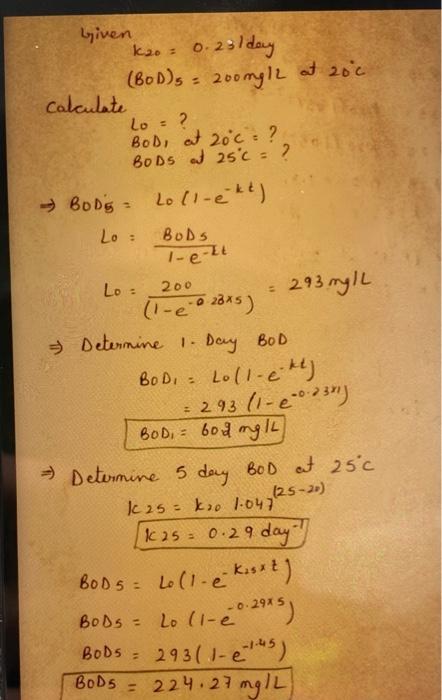 Given
k20 = 0.23/day
(BOD)5 = 200mg/L at 20°C
Calculate
Lo = ?
BOD1 at 20°C = ?
BOD5 at 25°C = ?
⇒ BOD5 = Lo (1-e^-kt)
Lo = BOD5 / 1-e^-kt
Lo = 200 / (1-e^-0.23x5) = 293 mg/L
⇒ Determine 1-Day BOD
BOD1 = Lo(1-e^-kt)
= 293 (1-e^-0.23x1)
BOD1 = 60.2 mg/L
⇒ Determine 5 day BOD at 25°C
k25 = k20 1.047^(25-20)
k25 = 0.29 day^-1
BOD5 = Lo(1-e^-k25xt)
BOD5 = Lo (1-e^-0.29x5)
BOD5 = 293(1-e^-1.45)
BOD5 = 224.27 mg/L